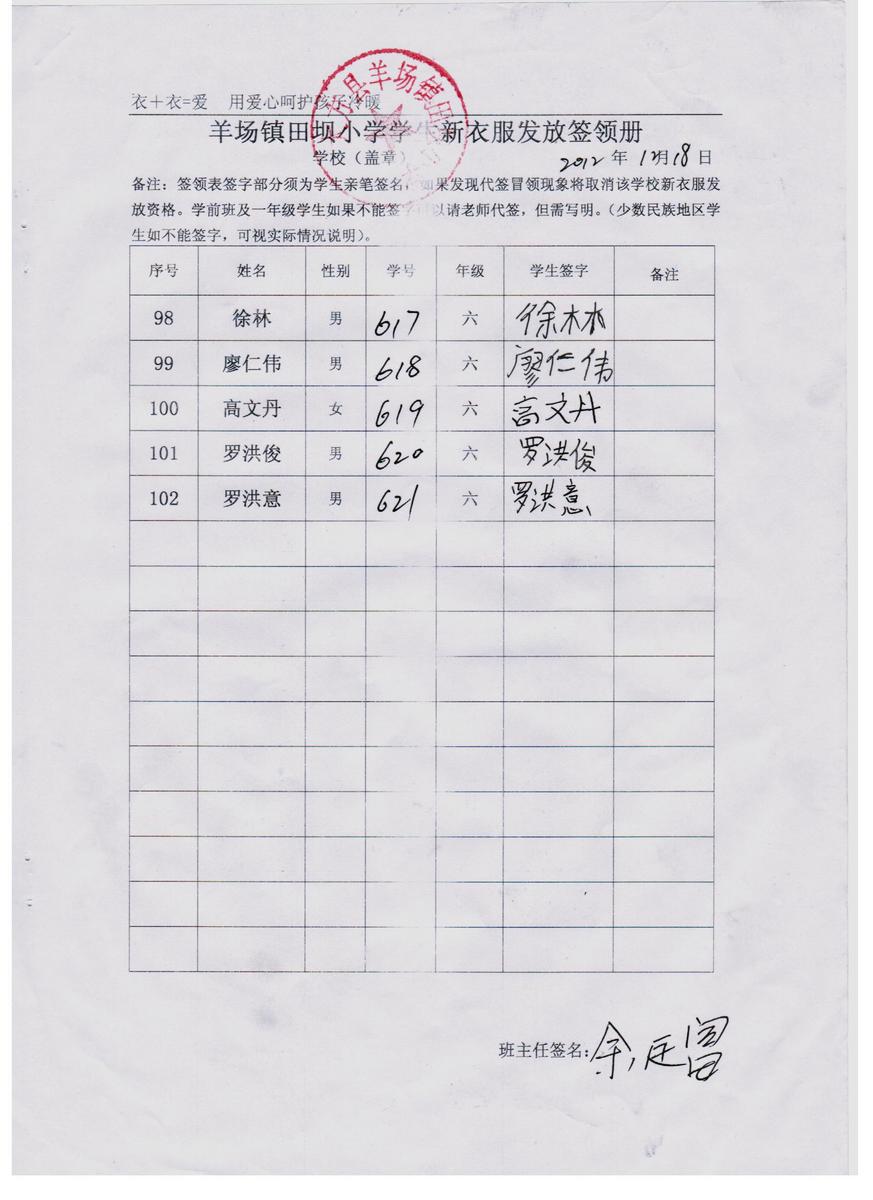 衣+衣=爱 用爱心呵护孩子冷暖
羊场镇田坝小学学生新衣服发放签领册
学校(盖章) 2012 年 12月18日
备注:签领表签字部分须为学生亲笔签名,如果发现代签冒领现象将取消该学校新衣服发
放资格。学前班及一年级学生如果不能签字可以请老师代签,但需写明。(少数民族地区学
生如不能签字,可视实际情况说明)。
序号 姓名 性别 学号 年级 学生签字 备注
98 徐林 男 617 六 徐林
99 廖仁伟 男 618 六 廖仁伟
100 高文丹 女 619 六 高文丹
101 罗洪俊 男 620 六 罗洪俊
102 罗洪意 男 621 六 罗洪意
班主任签名: